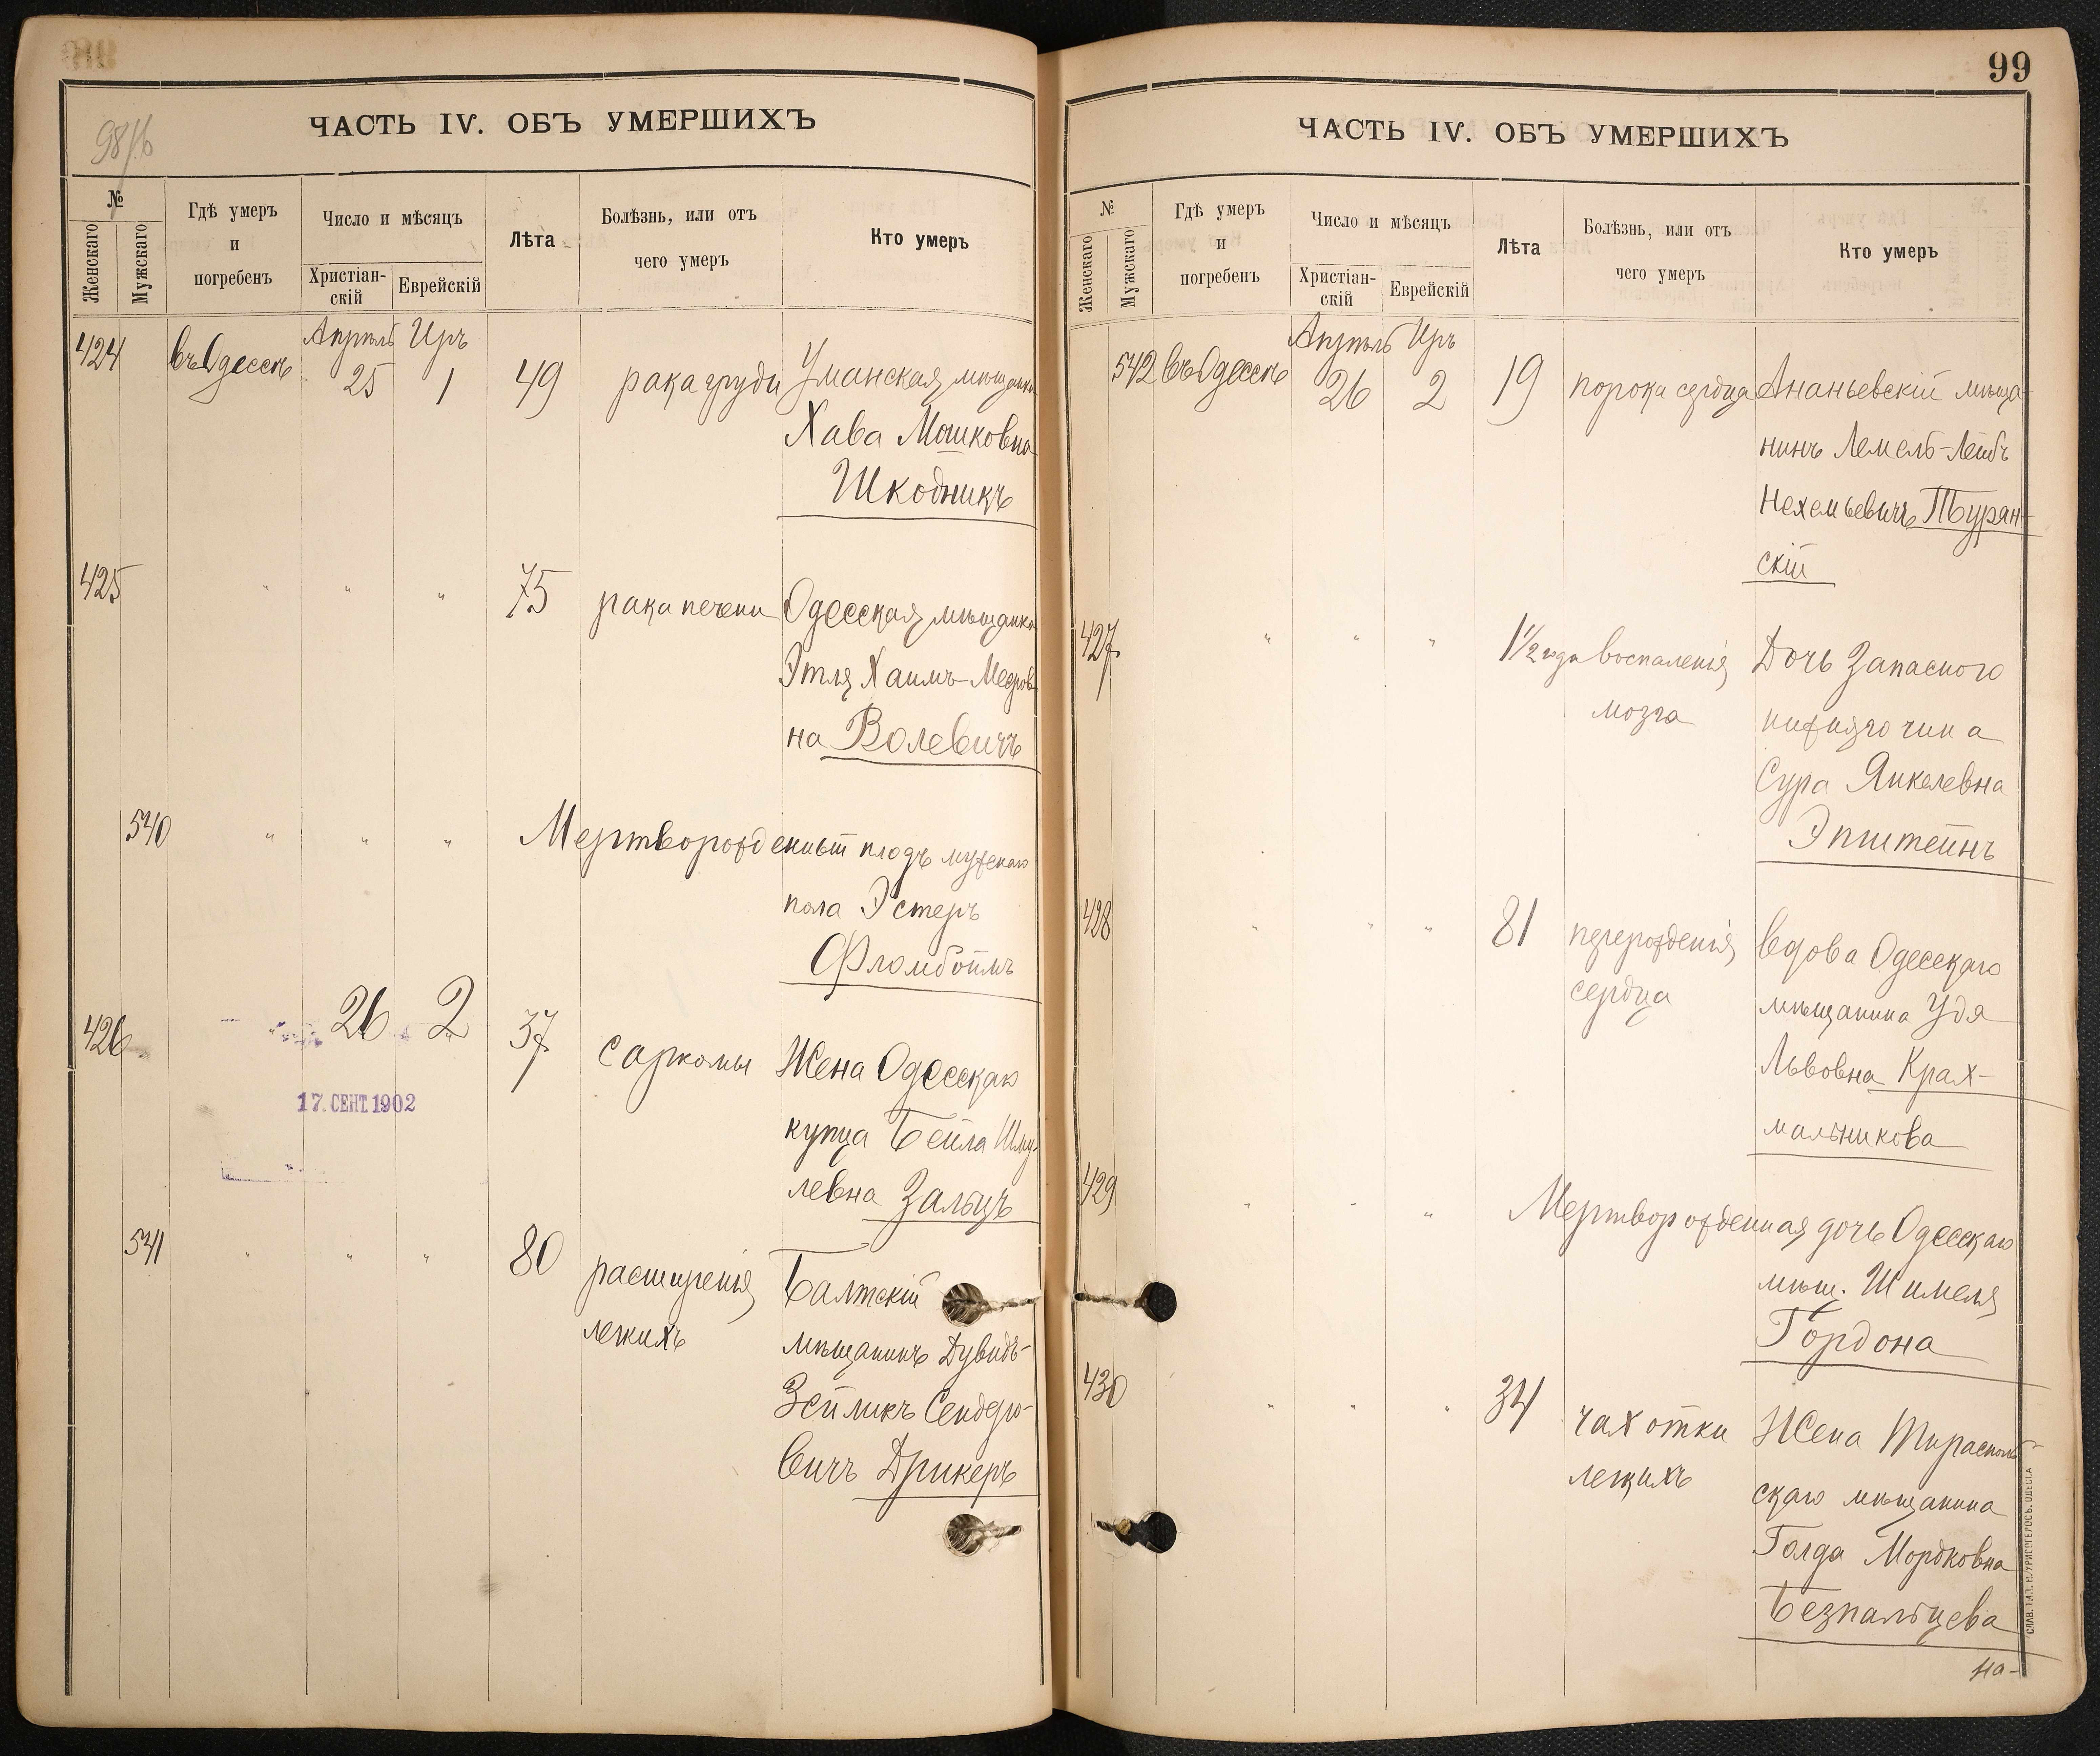 98/б
ЧАСТЬ IV. ОБЪ УМЕРШИХЪ
№
Женскаго
Мужскаго
Гдѣ умеръ
и
погребенъ
Число и мѣсяцъ
Христіан-
скій
Еврейскій
Лѣта
Болѣзнь, или отъ
чего умеръ
Кто умеръ
Апрѣль Иръ
424 въ Одессѣ 25 1 49 рака груди Уманская мѣщанка
Хава Мошковна
Шкодникъ
425 " " " 75 рака печени Одесская мѣщанка
Этля Хаимъ-Мееров-
на Волевичъ
540 " " " Мертворожденный плодъ мужскаго
пола Эстеръ
Фломбоймъ
426 26 2 37 саркомы Жена Одесскаго
17. СЕНТ. 1902
купца Бейла Шму-
левна Зальцъ
541 " " " 80 расширенія Балтскій
легкихъ мѣщанинъ Дувидъ-
Зейликъ Сендеро-
вичъ Дрикеръ
99
ЧАСТЬ IV. ОБЪ УМЕРШИХЪ
№
Женскаго
Мужскаго
Гдѣ умеръ
и
погребенъ
Число и мѣсяцъ
Христіан-
скій
Еврейскій
Лѣта
Болѣзнь, или отъ
чего умеръ
Кто умеръ
Апрѣль Иръ
542 въ Одессѣ 26 2 19 порока сердца Ананьевскій мѣща-
нинъ Лемель-Лейбъ
Нехемьевичъ Туран-
скій
427 " " " 1 1/2 года воспаленія Дочь Запасного
мозга нижняго чина
Сура Янкелевна
Эпштейнъ
428 " " " 81 перерожденія вдова Одесскаго
сердца мѣщанина Удя
Львовна Крах-
мальникова
429 " " " Мертворожденная дочь Одесскаго
мѣщ. Шимеля
Гордона
430 " " " 34 чахотки Жена Тирасполь-
легкихъ скаго мѣщанина
Голда Мордковна
Безпальцева
на-